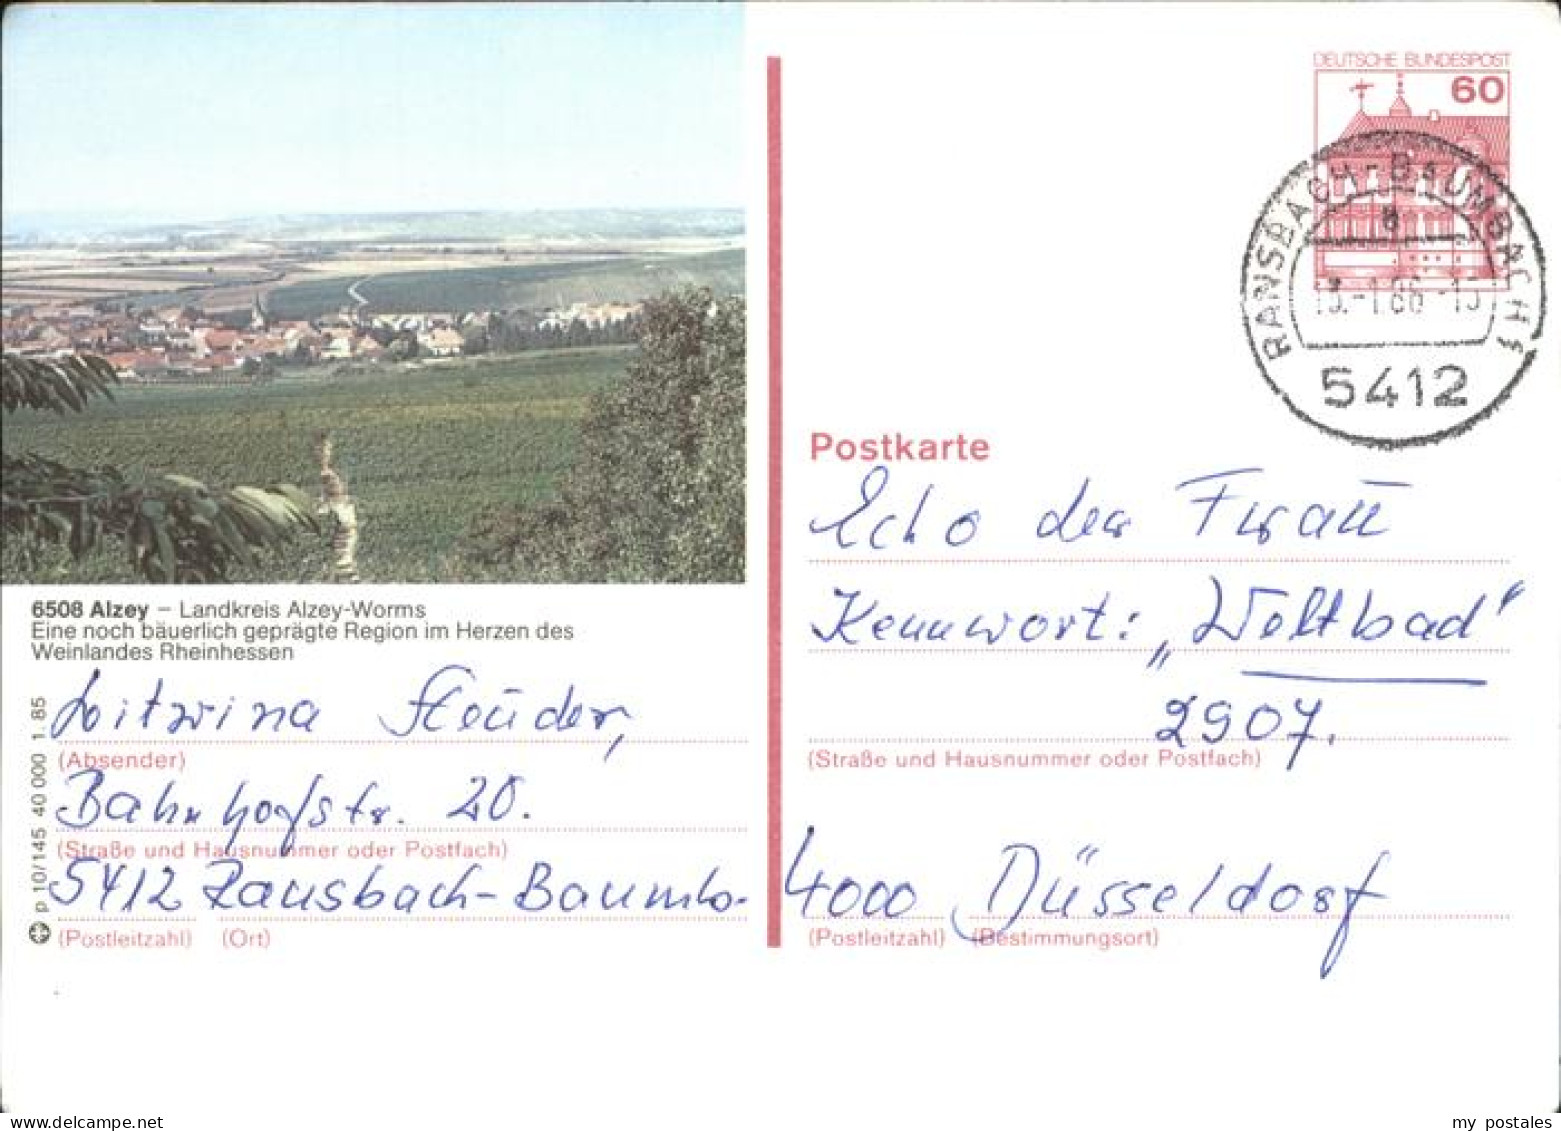 DEUTSCHE BUNDESPOST
60
RANSBACH-BAUMBACH 1
a
13.-1.86-15
5412
Postkarte
Echo der Frau
Kennwort: „Weltbad"
2907.
(Straße und Hausnummer oder Postfach)
4000 Düsseldorf
(Postleitzahl) (Bestimmungsort)
6508 Alzey – Landkreis Alzey-Worms
Eine noch bäuerlich geprägte Region im Herzen des
Weinlandes Rheinhessen
Loitwina Steuder,
(Absender)
Bahnhofstr. 20.
(Straße und Hausnummer oder Postfach)
5412 Ransbach-Baumb.
(Postleitzahl) (Ort)
p 10/145 40 000 1.85
my postales